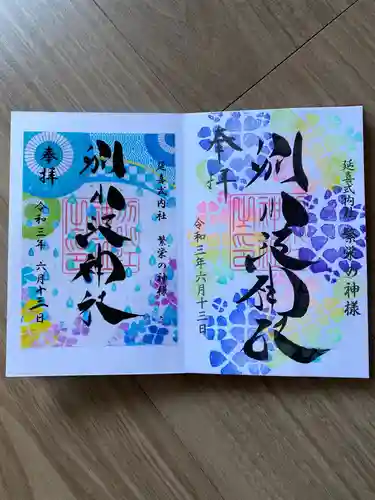 延喜式内社 繁栄の神様
別小江神社
奉拝
令和三年六月十三日
延喜式内社 繁栄の神様
別小江神社
奉拝
令和三年 六月十三日